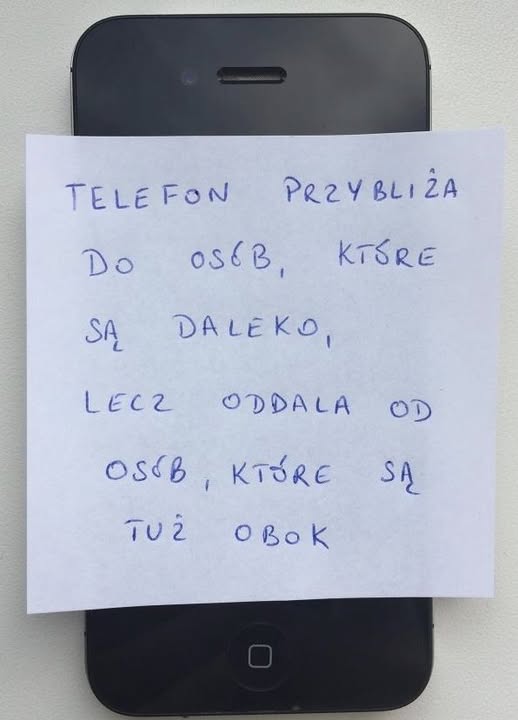 TELEFON PRZYBLIŻA
DO OSÓB, KTÓRE
SĄ DALEKO,
LECZ ODDALA OD
OSÓB, KTÓRE SĄ
TUŻ OBOK